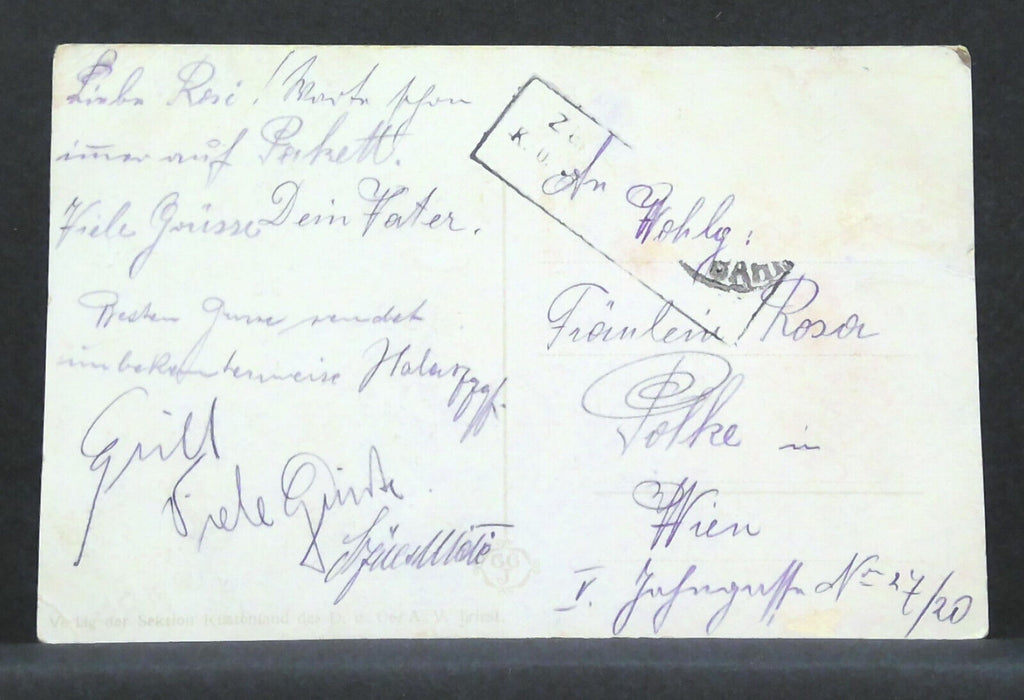 Liebe Rosi! Warte schon
immer auf Pakett.
Viele Grüsse Dein Vater.
Besten Gruss sendet
unbekannterweise
Grill
Viele Grüsse
Z
K. u.
An
Wohlg:
Fräulein Rosa
Polke in
Wien
V. Jahngasse No 27/20
Verlag der Sektion Küstenland des D. u. Oe. A. V. Triest.